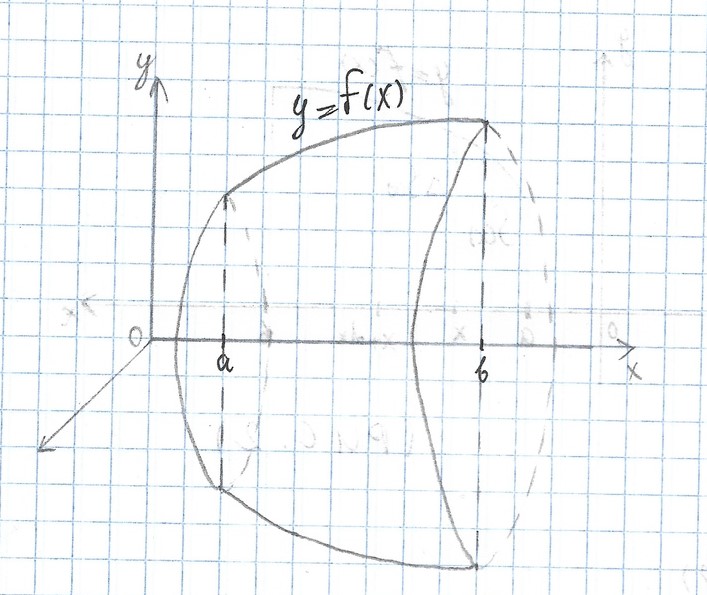 y
y=f(x)
0
a
b
x